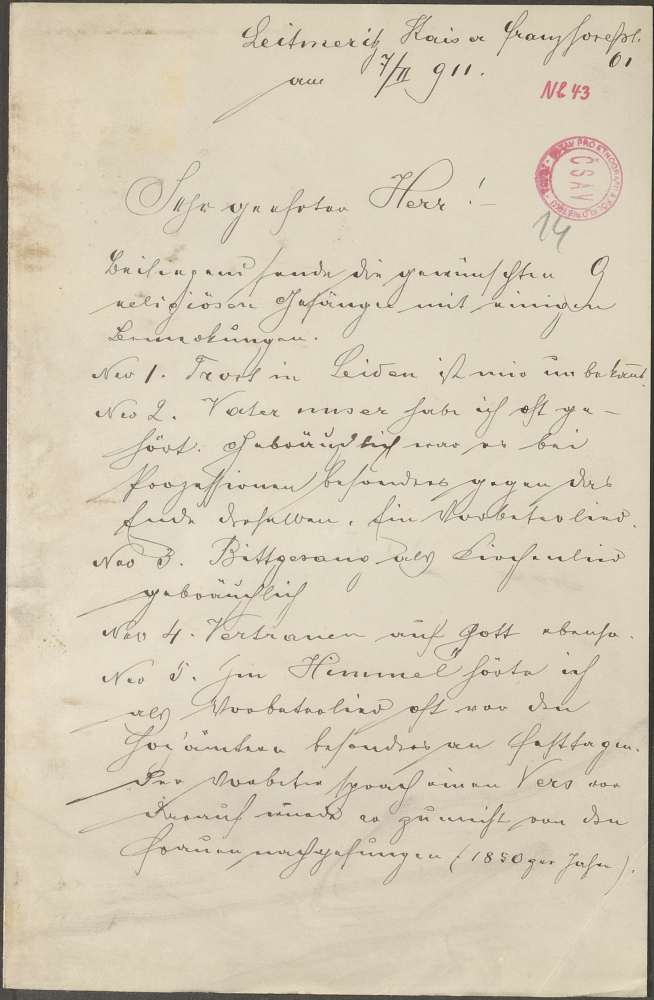 Leitmeritz Kaiser Franz Josefpl.
61
am 7/II 911.
Nl 43
ČSAV
14
Sehr geehrter Herr!
Beiliegend sende die gewünschten 9
religiösen Gesänge mit einigen
Bemerkungen.
Nro 1. Trost in Leiden ist mir unbekannt.
Nro 2. Vater unser habe ich oft ge-
hört. Gebräuchlich war es bei
Prozessionen besonders gegen das
Ende derselben. Ein Vorbeterlied.
Nro 3. Bittgesang als Kirchenlied
gebräuchlich
Nro 4. Vertrauen auf Gott ebenso.
Nro 5. Im Himmel hörte ich
als Vorbeterlied oft vor den
Hoj'ämtern besonders an Festtagen.
Der Vorbeter sprach einen Vers vor
darauf wurde er zumeist von den
Frauen nachgesungen (1850ger Jahre).